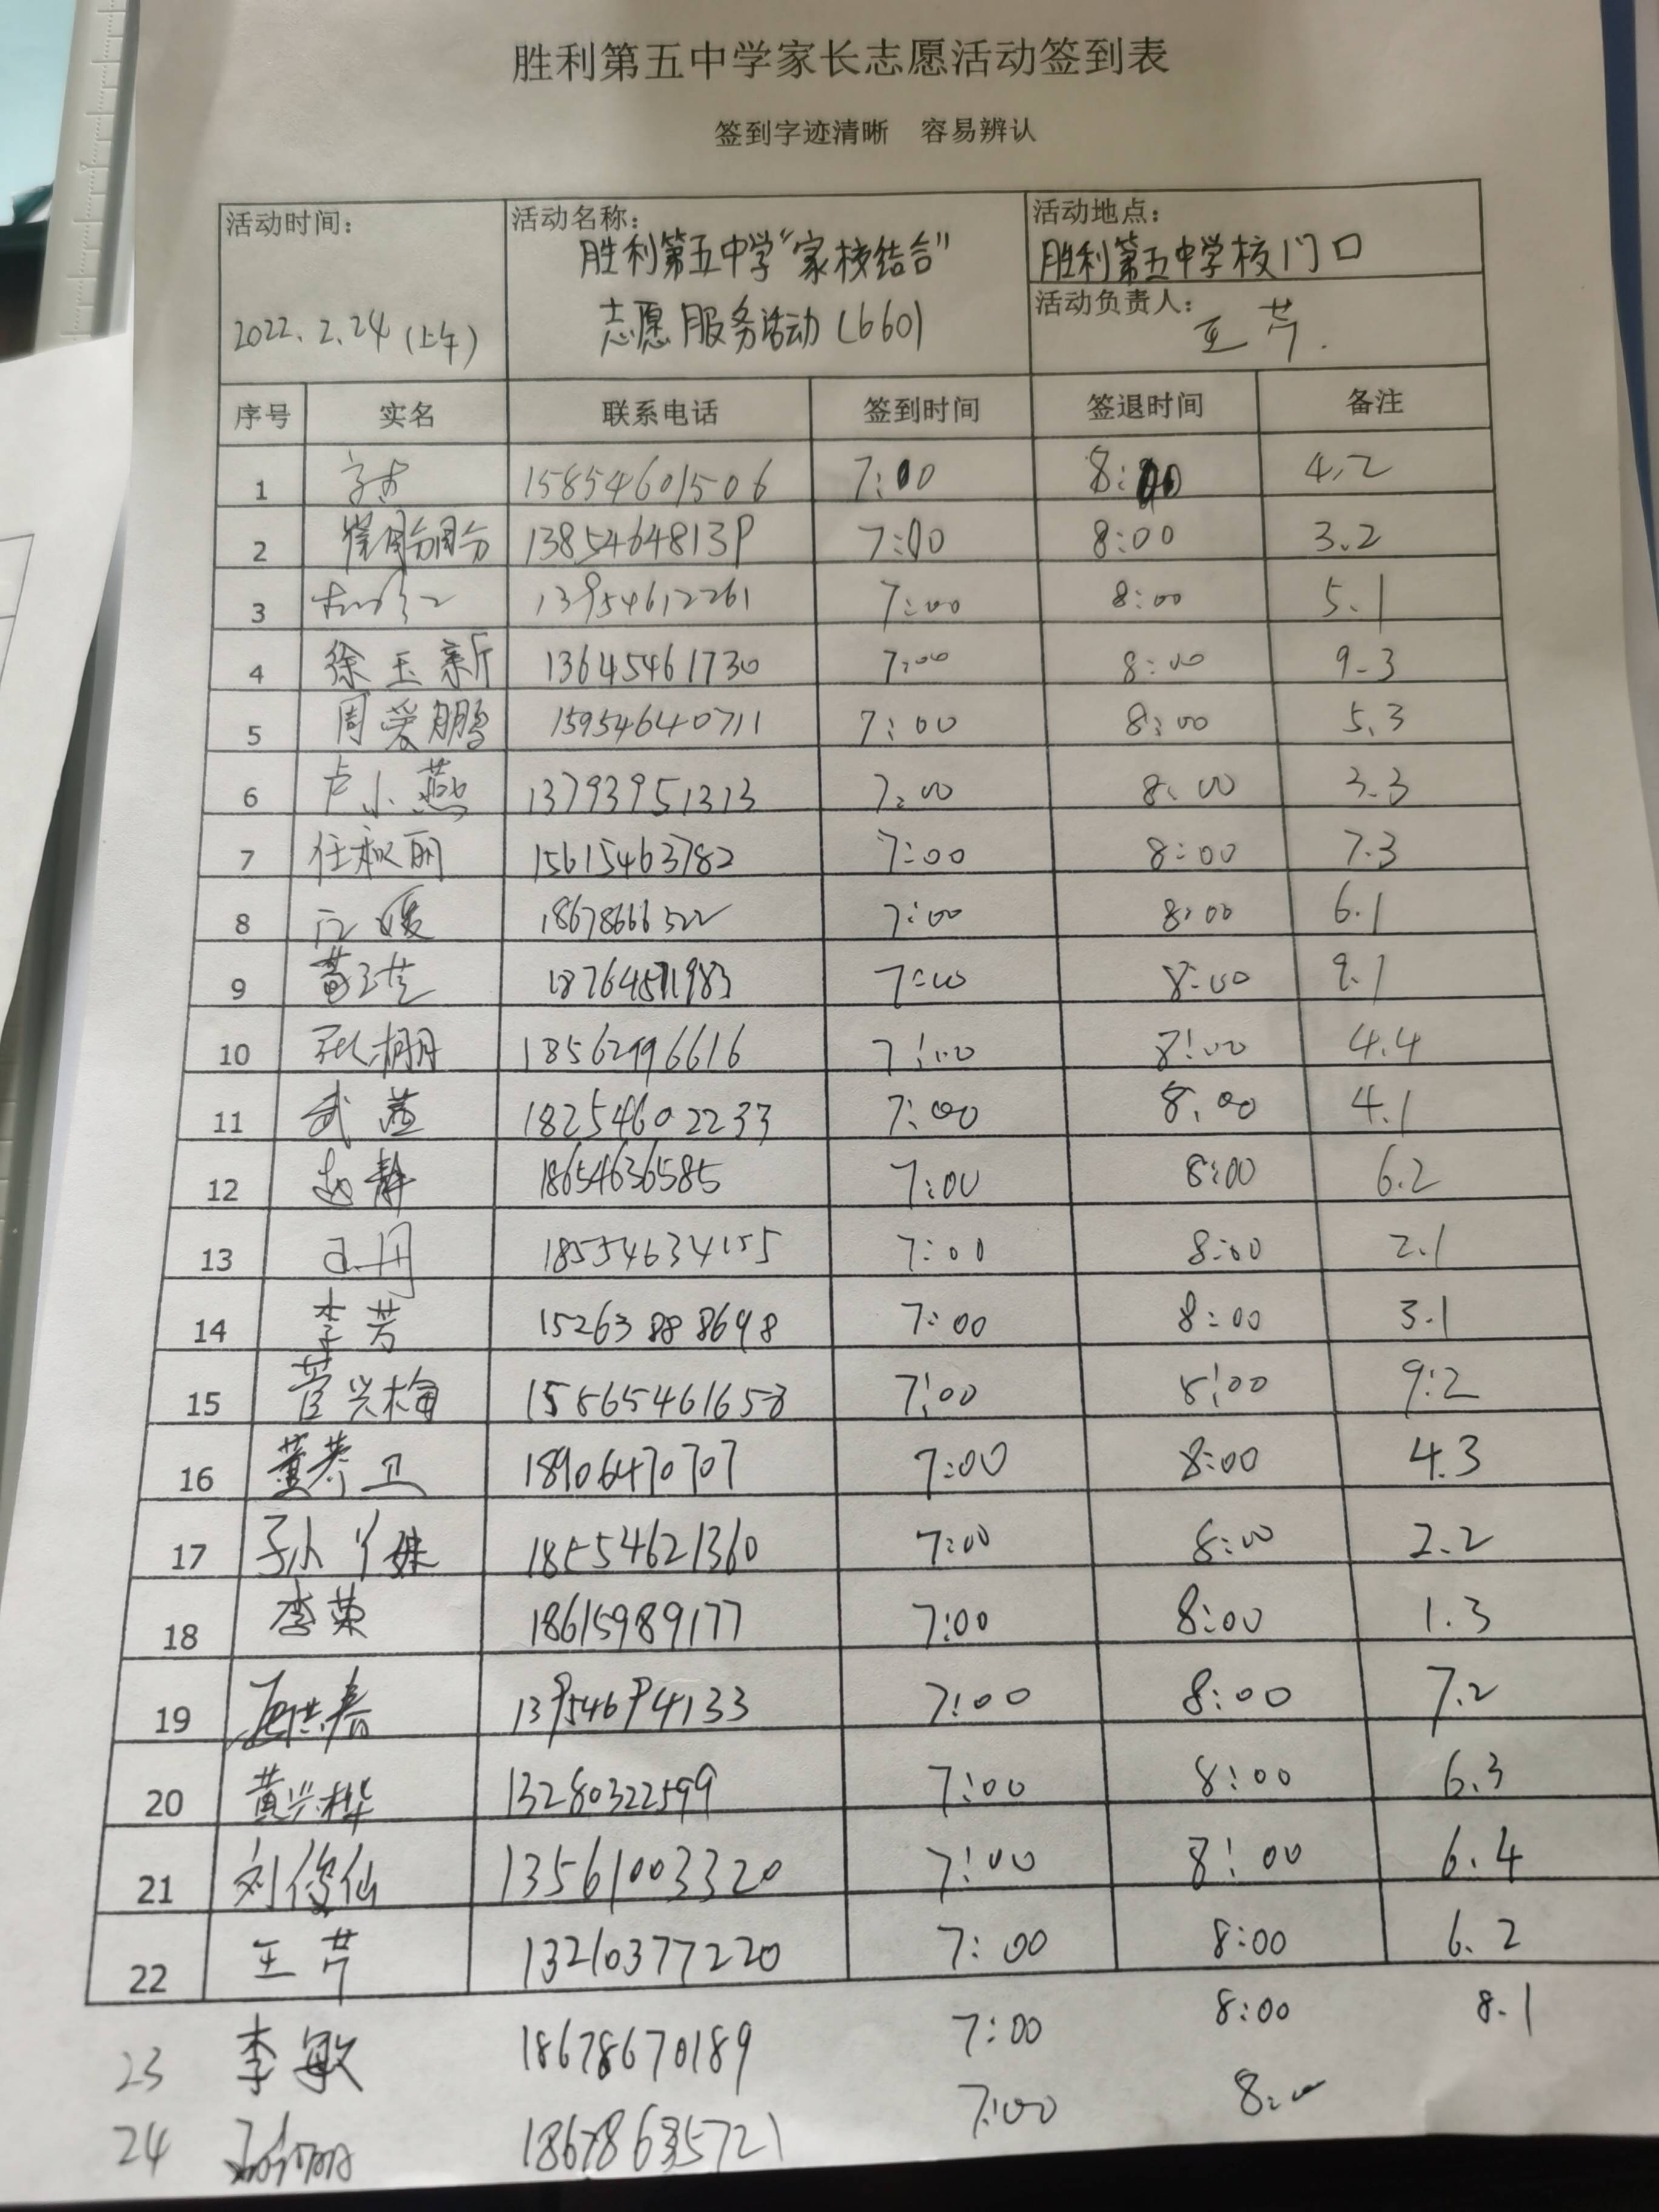 胜利第五中学家长志愿活动签到表
签到字迹清晰 容易辨认
活动时间： 活动名称： 活动地点：
胜利第五中学"家校结合" 胜利第五中学校门口
活动负责人：
2022.2.24(上午) 志愿服务活动(660) 王芹.
序号 实名 联系电话 签到时间 签退时间 备注
1 15854601506 7:00 8:00 4.2
2 13854648139 7:00 8:00 3.2
3 13954612261 7:00 8:00 5.1
4 徐玉新 13645461730 7:00 8:00 9.3
5 周爱鹏 15954640711 7:00 8:00 5.3
6 卢小燕 13793951313 7:00 8:00 3.3
7 任淑丽 15615463782 7:00 8:00 7.3
8 媛 18678666522 7:00 8:00 6.1
9 黄 7:00 8:00 9.1
10 张棚 18562996616 7:00 8:00 4.4
11 武燕 18254602233 7:00 8:00 4.1
12 赵静 18654636585 7:00 8:00 6.2
13 王丹 18554634155 7:00 8:00 2.1
14 李芳 15263888698 7:00 8:00 3.1
15 菅兴梅 15865461658 7:00 8:00 9:2
16 董恭卫 18906470707 7:00 8:00 4.3
17 孙丫妹 18554621360 7:00 8:00 2.2
18 李荣 18615989177 7:00 8:00 1.3
19 13954694133 7:00 8:00 7.2
20 黄兴桦 13280322599 7:00 8:00 6.3
21 刘俊仙 13561003320 7:00 8:00 6.4
22 王芹 13210377220 7:00 8:00 6.2
23 李敏 18678670189 7:00 8:00 8.1
24 7:00 8:00